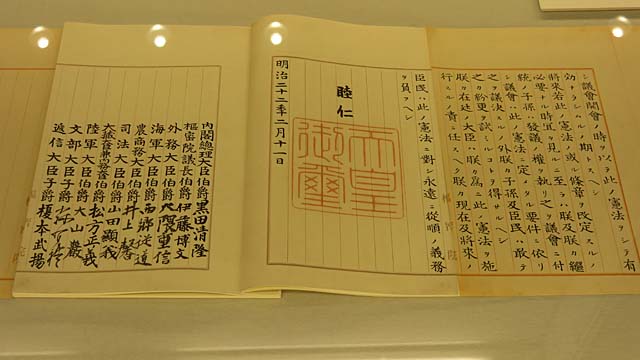 シ議會開會ノ時ヲ以テ此ノ憲法ヲシテ有
効ナラシムルノ期トスヘシ
將來若此ノ憲法ノ或ル條章ヲ改定スルノ
必要ナル時宜ヲ見ルニ至ラハ朕及朕カ繼
統ノ子孫ハ發議ノ權ヲ執リ之ヲ議會ニ付
シ議會ハ此ノ憲法ニ定メタル要件ニ依リ
之ヲ議決スルノ外朕カ子孫及臣民ハ敢テ
之カ紛更ヲ試ミルコトヲ得サルヘシ
朕カ在廷ノ大臣ハ朕カ爲ニ此ノ憲法ヲ施
行スルノ責ニ任スヘク朕カ現在及將來ノ
臣民ハ此ノ憲法ニ對シ永遠ニ從順ノ義務
ヲ負フヘシ
睦仁
天皇
御璽
明治二十二年二月十一日
内閣總理大臣伯爵黒田清隆
樞密院議長伯爵伊藤博文
外務大臣伯爵大隈重信
海軍大臣伯爵西郷從道
農商務大臣伯爵井上馨
司法大臣伯爵山田顯義
大藏大臣兼内務大臣伯爵松方正義
陸軍大臣伯爵大山巖
文部大臣子爵森有禮
遞信大臣子爵榎本武揚